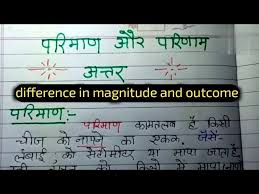 परिमाण और परिणाम
अन्तर
difference in magnitude and outcome
परिमाण:-
परिमाण का मतलब है किसी
चीज को नापने का एकक. जैसे-
लंबाई को सेंटीमीटर या मापा जाता है.